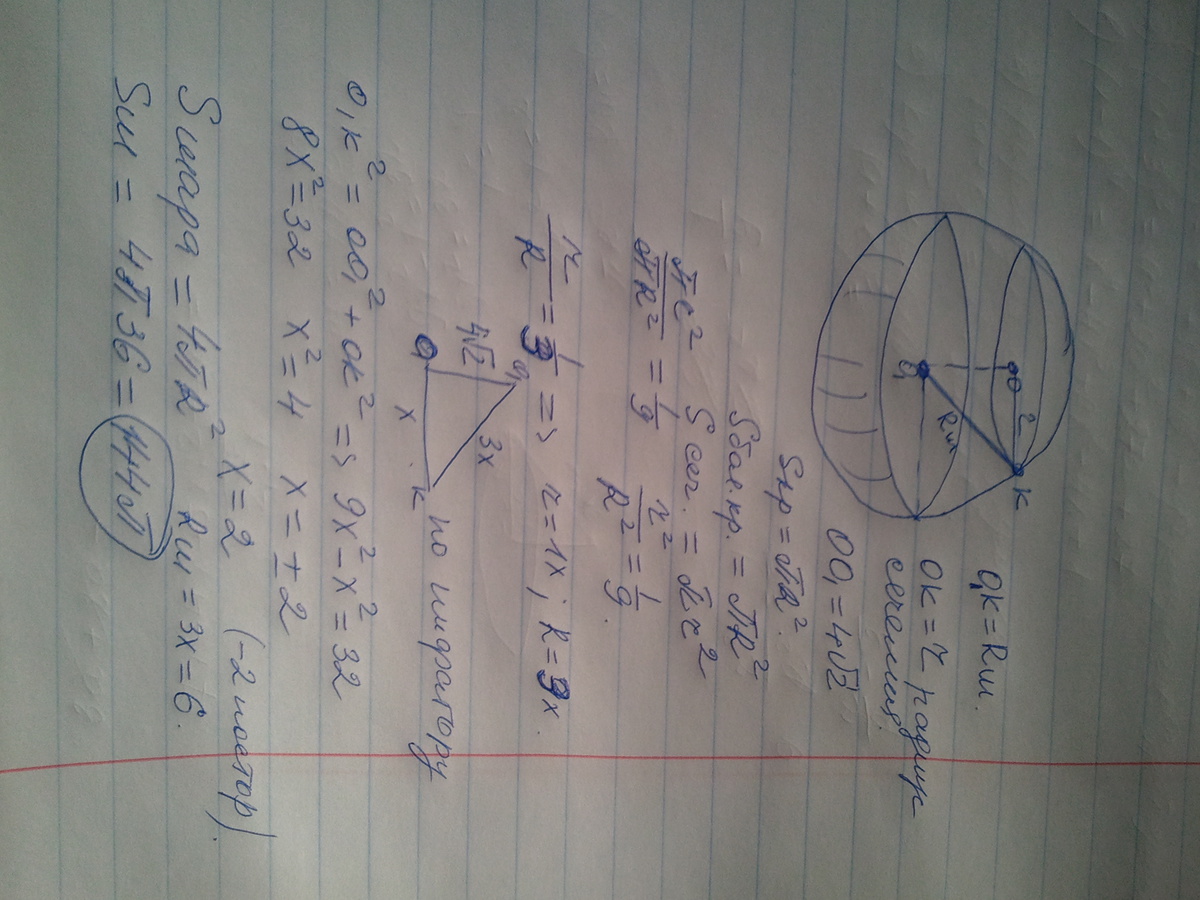 O₁K = Rш.
OK = r радиус
сечения.
OO₁ = 4√2
Sкр = πR².
Sбол.кр. = πR²
Sсеч. = πr²
πr²/πR² = 1/9 r²/R² = 1/9.
r/R = 1/3 => r = 1x; R = 3x.
O₁ O K Rш r
O₁ 4√2 3x O x K по пифагору
O₁K² = OO₁² + OK² => 9x² - x² = 32
8x² = 32 x² = 4 x = ± 2
x = 2 (-2 постор).
Sшара = 4πR² Rш = 3x = 6.
Sш = 4π36 = 144π